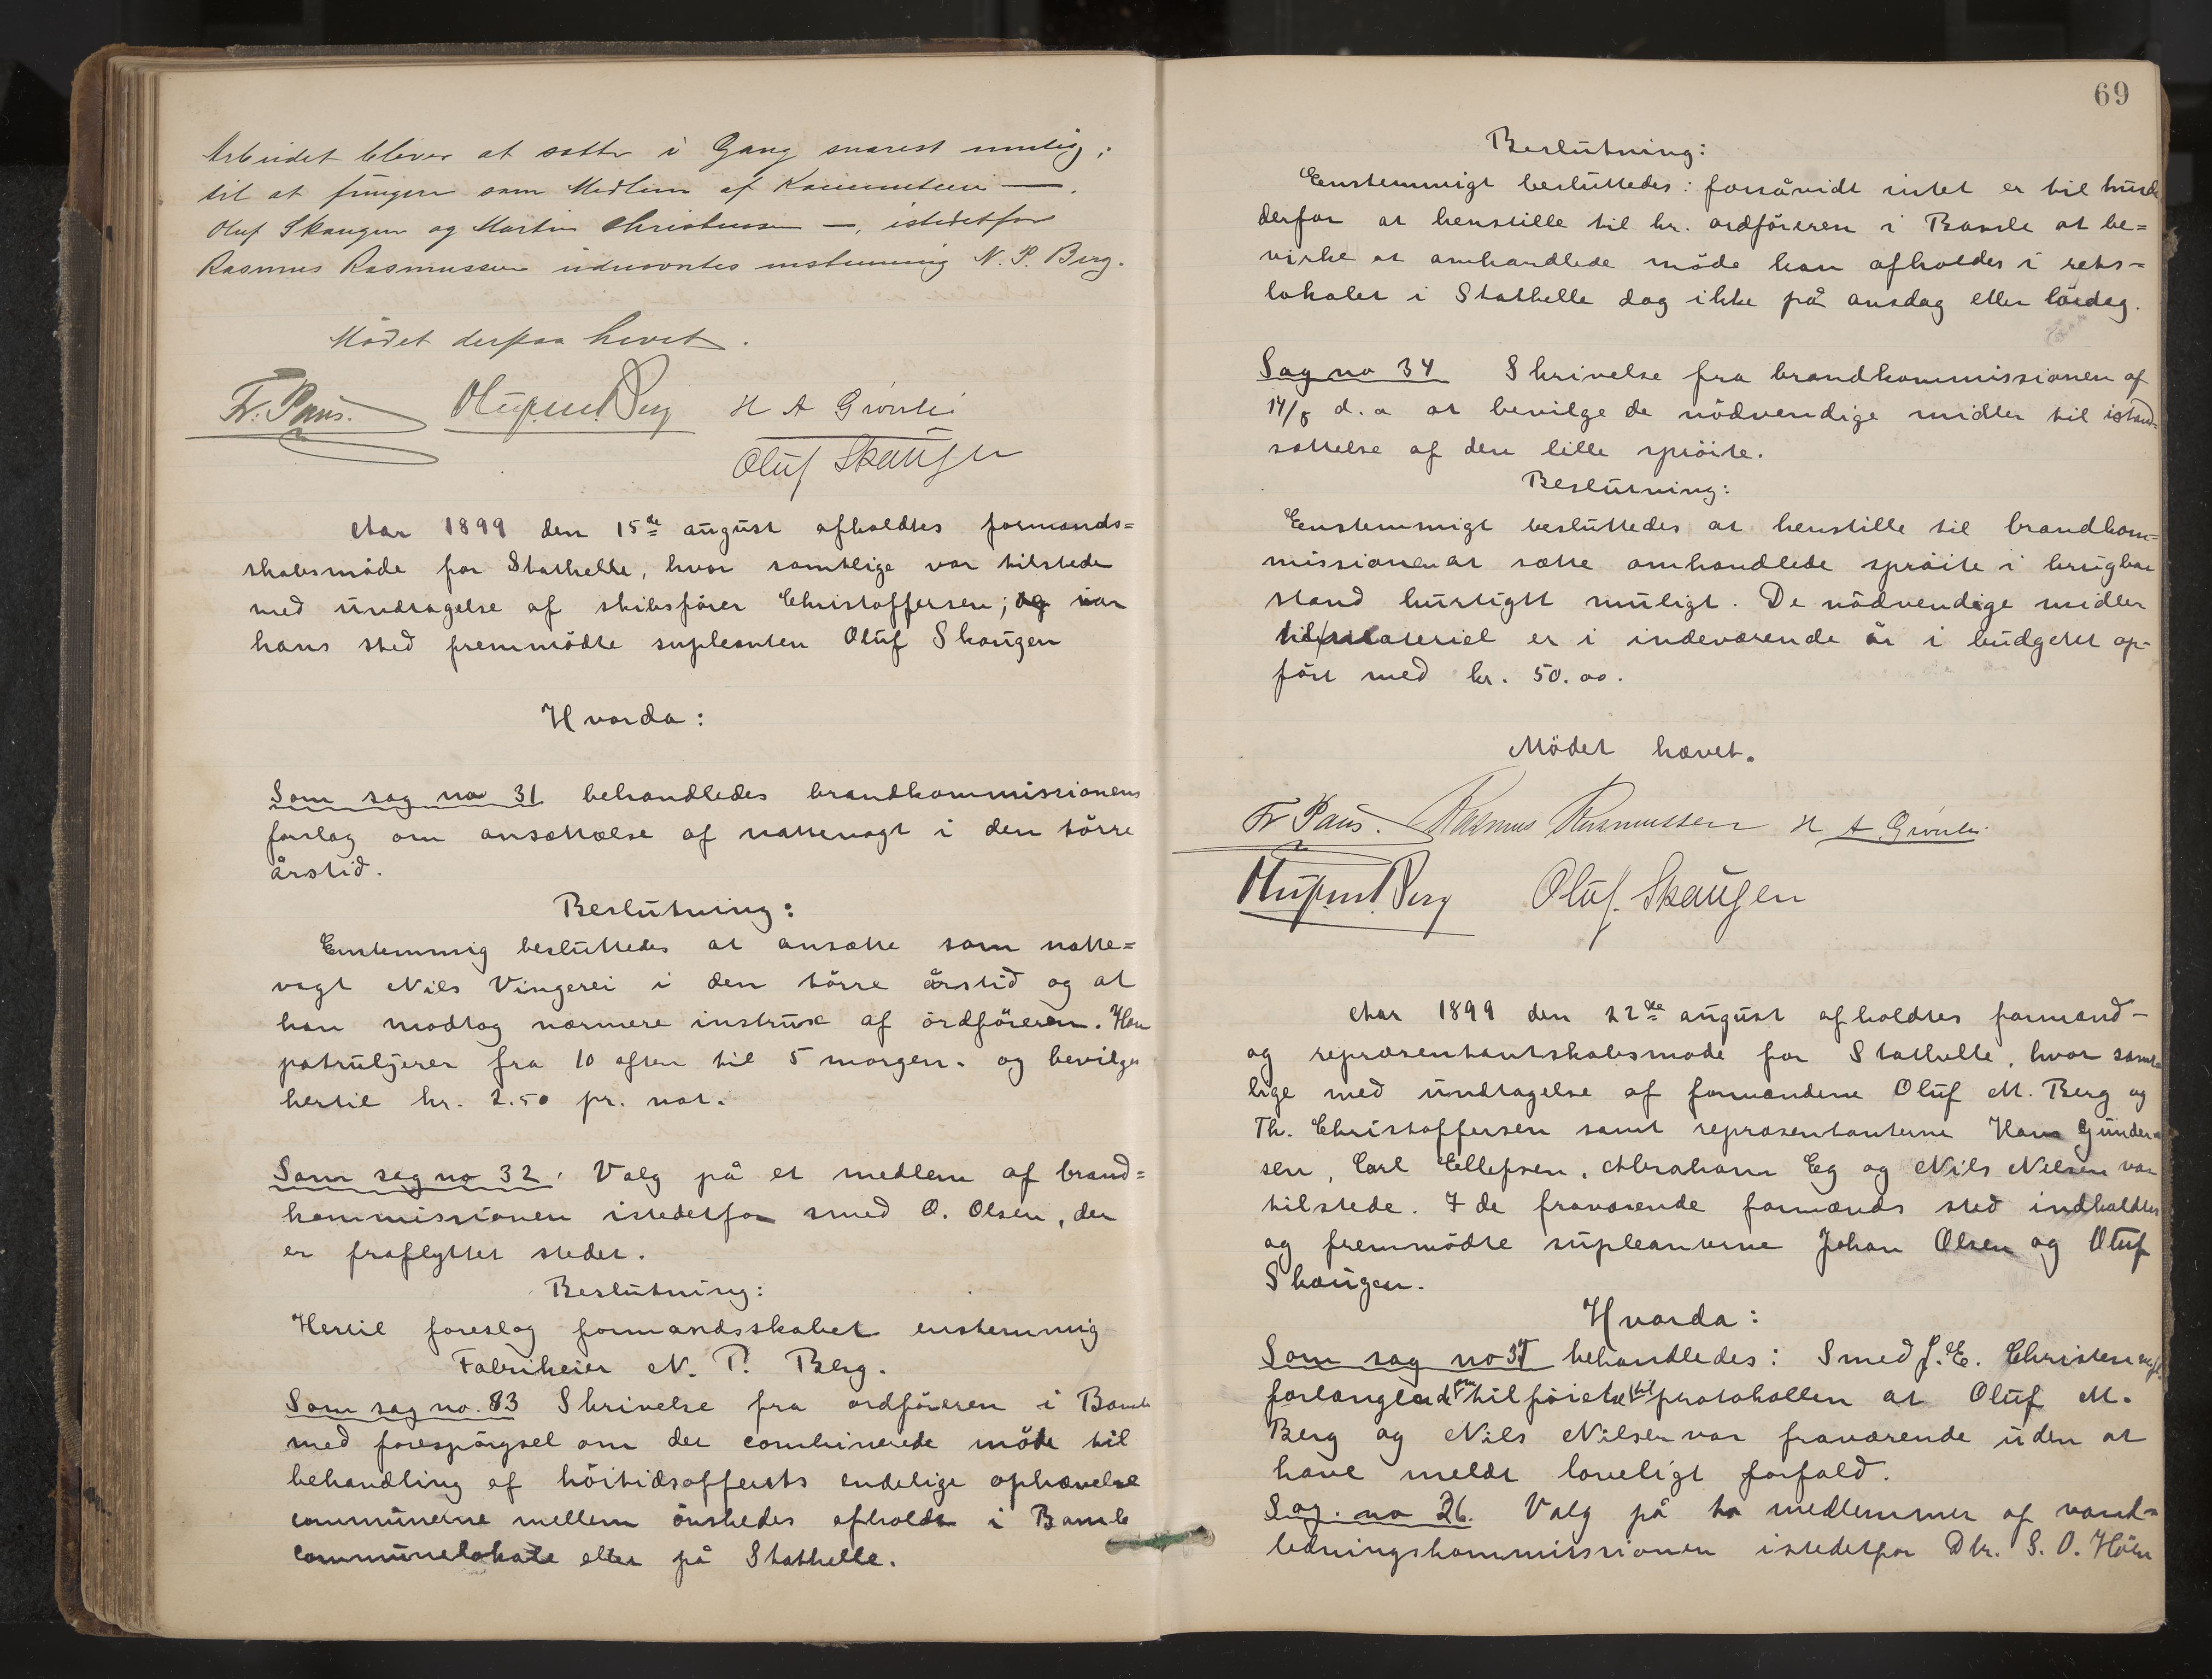 Arbeidet bliver at sætte i Gang snarest mulig;
til at fungere som Medlem af Kommunteen —.
Oluf Skaugen og Martin Christensen —, istedetfor
Rasmus Rasmussen udnævntes enstemmig N. P. Berg.
Mødet derpaa hævet.
Fr. Paus. Oluf M. Berg H A Grönli
Oluf Skaugen
Aar 1899 den 15de august afholdtes formands=
skabsmöde for Stathelle, hvor samtlige var tilstede
med undtagelse af skibsförer Christoffersen; og var
hans sted fremmödte supleanten Oluf Skaugen
Hvorda:
Som sag no 31 behandledes brandkommissionens
forslag om ansættelse af nattevagt i den törre
årstid.
Beslutning:
Enstemmig besluttedes at ansætte som natte=
vagt Nils Vingerei i den törre årstid og at
han modtog nærmere instrux af ordföreren. Han
patruljerer fra 10 aften til 5 morgen. og bevilges
hertil kr. 2.50 pr. nat.
Som sag no 32. Valg på et medlem af brand=
kommissionen istedetfor smed O. Olsen, der
er fraflyttet stedet.
Beslutning:
Hertil foreslog formandsskabet enstemmig
Fabrikeier N. P. Berg.
Som sag no. 33 Skrivelse fra ordföreren i Bamle
med forespörgsel om det combinerede möde til
behandling af höitidsofferets endelige ophævelse
communerne mellem önskedes afholdt i Bamle
communelokale eller på Stathelle.
69
Beslutning:
Eenstemmigt besluttedes: forsåvidt intet er til hinder
derfor at henstille til hr. ordföreren i Bamle at be=
virke at omhandlede möde kan afholdes i rets=
lokalet i Stathelle dog ikke på onsdag eller lördag.
Sag no 34 Skrivelse fra brandkommissionen af
14/8 d. a at bevilge de nödvendige midler til istand=
sættelse af den lille spröite.
Beslutning:
Eenstemmigt besluttedes at henstille til brandkom=
missionen at sætte omhandlede spröite i brugbar
stand hurtigst muligt. De nödvendige midler
til materiel er i indeværende år i budgettet op=
fört med kr. 50.00.
Mödet hævet.
Fr Paus. Rasmus Rasmussen H A Grönli
Oluf M. Berg Oluf. Skaugen
Aar 1899 den 22de august afholdtes formand-
og repræsentantskabsmöde for Stathelle, hvor samt
lige med undtagelse af formændene Oluf M. Berg og
Th. Christoffersen samt repræsentanterne Hans Gunder=
sen, Carl Ellefsen, Abraham Eg og Nils Nilsen var
tilstede. I de fraværende formænds sted indkaldtes
og fremmödte supleanterne Johan Olsen og Oluf
Skaugen.
Hvorda:
Som sag no 35 behandledes: Smed J. E. Christensen
forlanglede tilföiet til protokollen at Oluf M.
Berg og Nils Nilsen var fraværende uden at
have meldt loveligt forfald.
Sag. no 36. Valg på to medlemmer af vand=
ledningskommissionen istedetfor Dhr. S. O. Hölen